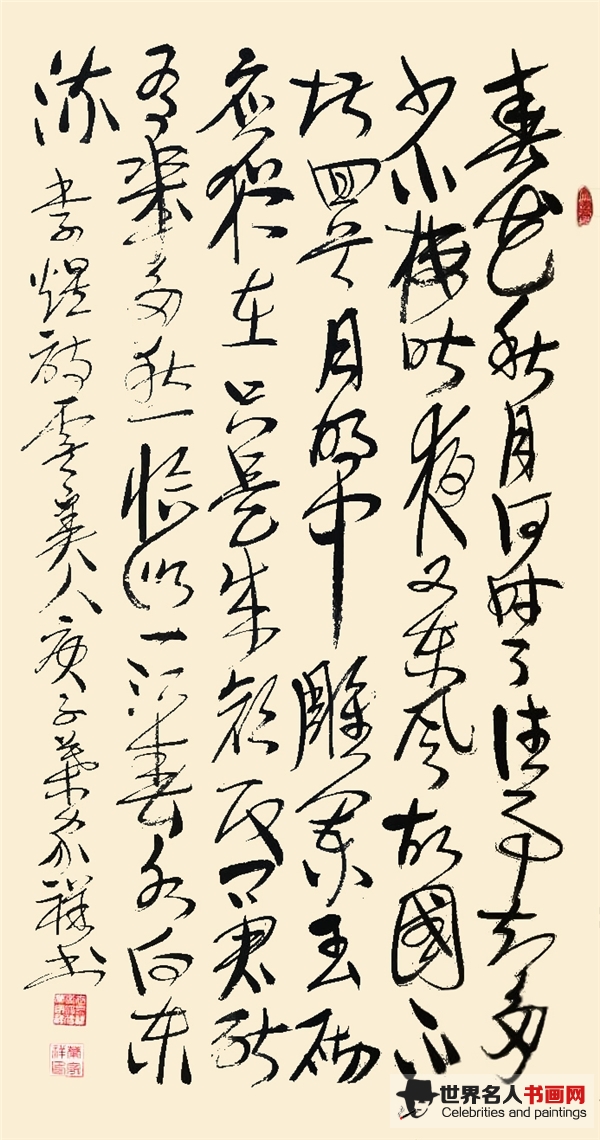 春花秋月何時了往事知多
少小樓昨夜又東風故國不
堪回首月明中雕闌玉砌
應猶在只是朱顏改問君能
有幾多愁恰似一江春水向東
流 李煜詞虞美人庚子葉家祥書
世界名人书画网
Celebrities and paintings